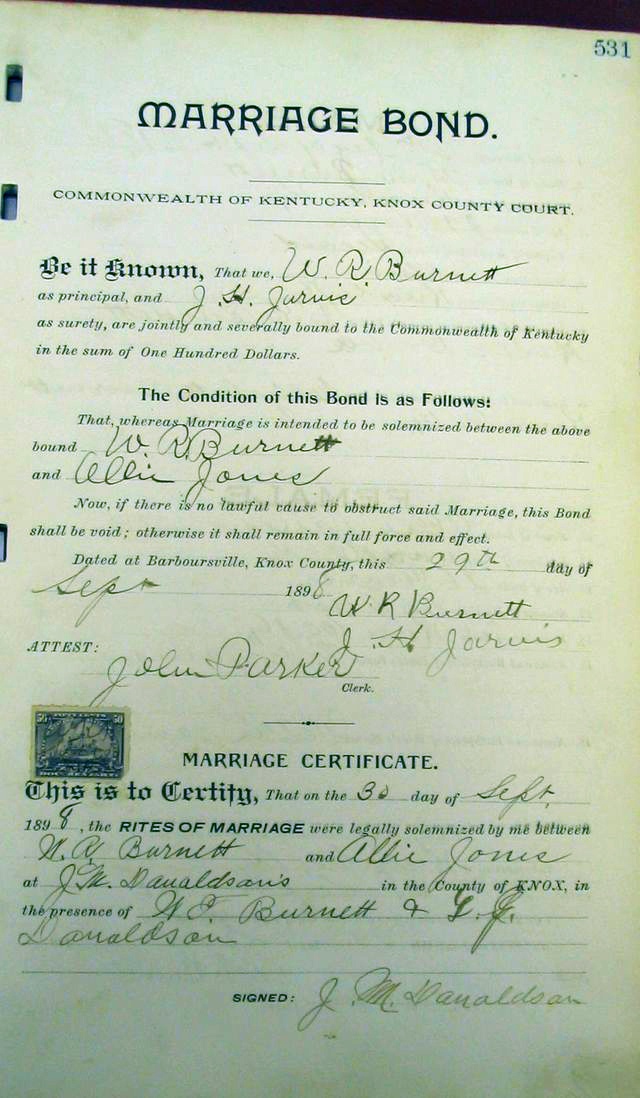 531
MARRIAGE BOND.
COMMONWEALTH OF KENTUCKY, KNOX COUNTY COURT.
Be it Known, That we, W. R. Burnett
as principal, and J. H. Jarvis
as surety, are jointly and severally bound to the Commonwealth of Kentucky
in the sum of One Hundred Dollars.
The Condition of this Bond is as Follows:
That, whereas Marriage is intended to be solemnized between the above
bound W. R. Burnett
and Allie Jones
Now, if there is no lawful cause to obstruct said Marriage, this Bond
shall be void; otherwise it shall remain in full force and effect.
Dated at Barboursville, Knox County, this 29th day of
Sept 1898
W. R Burnett
J. H Jarvis
ATTEST:
John Parker
Clerk.
50 FIFTY CENTS 50
DOCUMENTARY
MARRIAGE CERTIFICATE.
This is to Certify, That on the 30 day of Sept.
1898, the RITES OF MARRIAGE were legally solemnized by me between
W. R. Burnett and Allie Jones
at J. M. Danaldson's in the County of KNOX, in
the presence of W. E. Burnett & G. J.
Danaldson
SIGNED: J. M. Danaldson